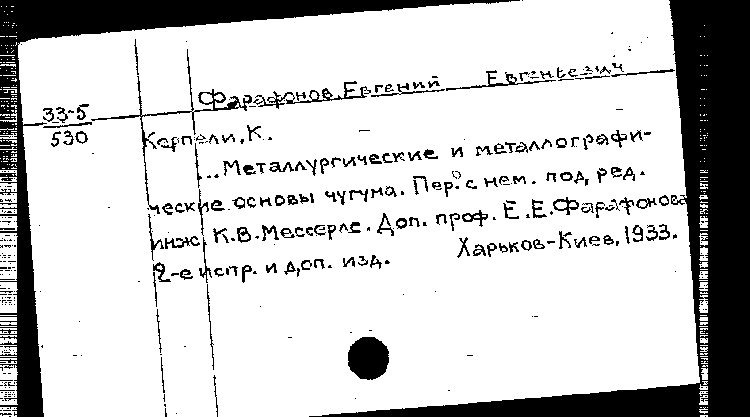 Фарафонов, Евгений Евгеньевич
33-5
530
Керпели, К.
...Металлургические и металлографи-
ческие основы чугуна. Пер. с нем. под, ред.
инж. К.В.Мессерле. Доп. проф. Е.Е.Фарафонова
2-е испр. и доп. изд. Харьков-Киев, 1933.